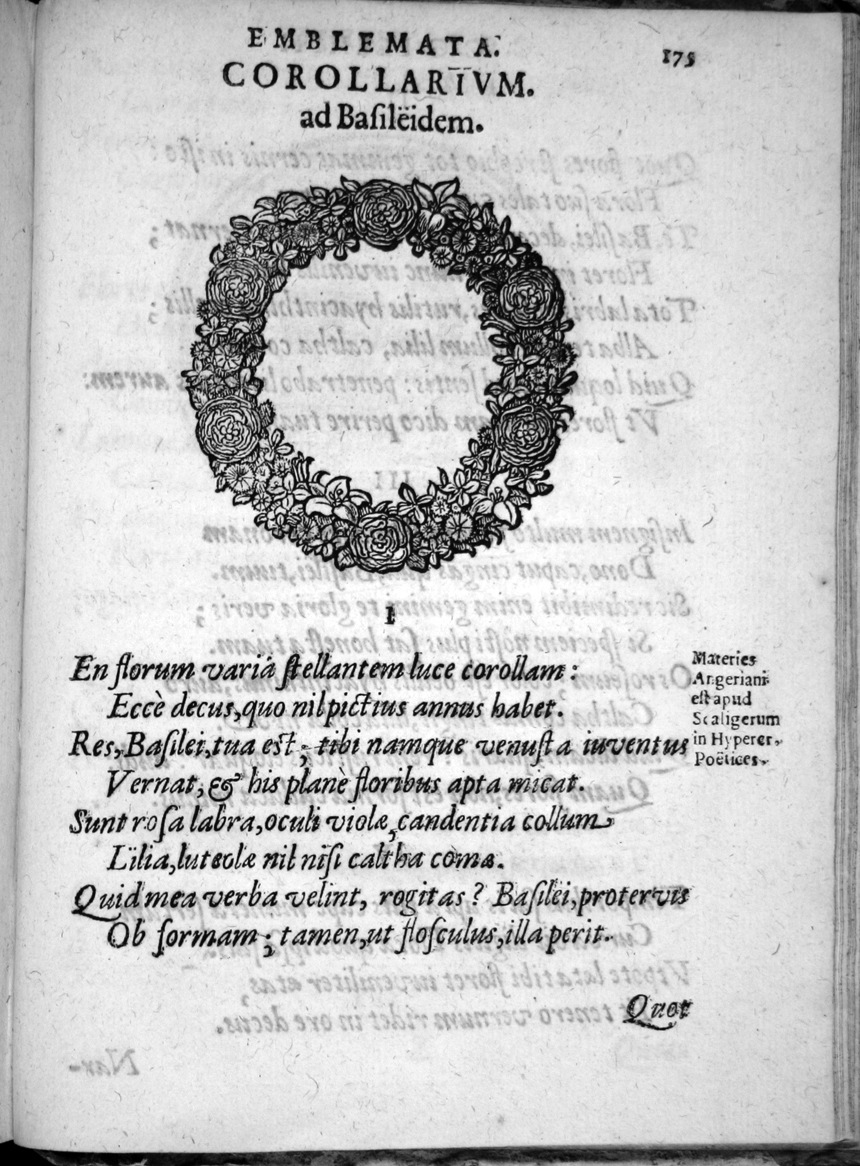 EMBLEMATA.
175
COROLLARIVM.
ad Baſilëidem.
I
En florum variâ ſtellantem luce corollam:
Eccè decus, quo nil pictius annus habet.
Res, Baſilei, tua eſt; tibi namque venuſta iuventus
Vernat, & his planè floribus apta micat.
Sunt roſa labra, oculi violæ, candentia collum
Lilia, luteolæ nil niſi caltha comæ.
Quid mea verba velint, rogitas? Baſilëi, protervis
Ob formam; tamen, ut floſculus, illa perit.
Materies
Angeriani
eſt apud
Scaligerum
in Hyperer.
Poëtices.
Quot